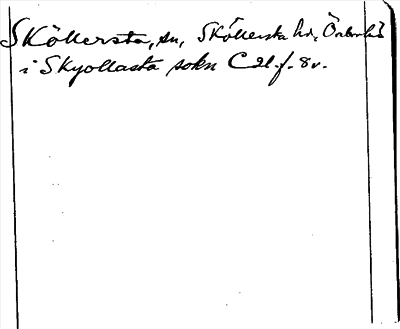 Sköllersta, sn, Sköllersta hd, Örebro l
i Skyollasta sokn C 21. f. 8v.